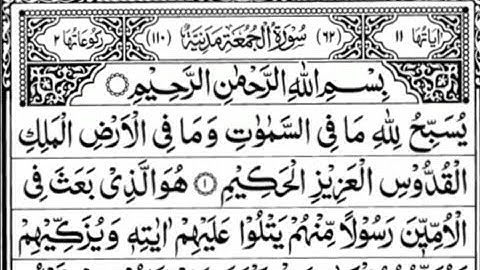 اٰيَاتُهَا ١١ (٦٢) سُوْرَةُ الْجُمُعَةِ مَدَنِيَّةٌ (١١٠) رُكُوْعَاتُهَا ٢
بِسْمِ اللّٰهِ الرَّحْمٰنِ الرَّحِيْمِ
يُسَبِّحُ لِلّٰهِ مَا فِى السَّمٰوٰتِ وَمَا فِى الْاَرْضِ الْمَلِكِ
الْقُدُّوْسِ الْعَزِيْزِ الْحَكِيْمِ ١ هُوَ الَّذِىْ بَعَثَ فِى
الْاُمِّيّٖنَ رَسُوْلًا مِّنْهُمْ يَتْلُوْا عَلَيْهِمْ اٰيٰتِهٖ وَيُزَكِّيْهِمْ